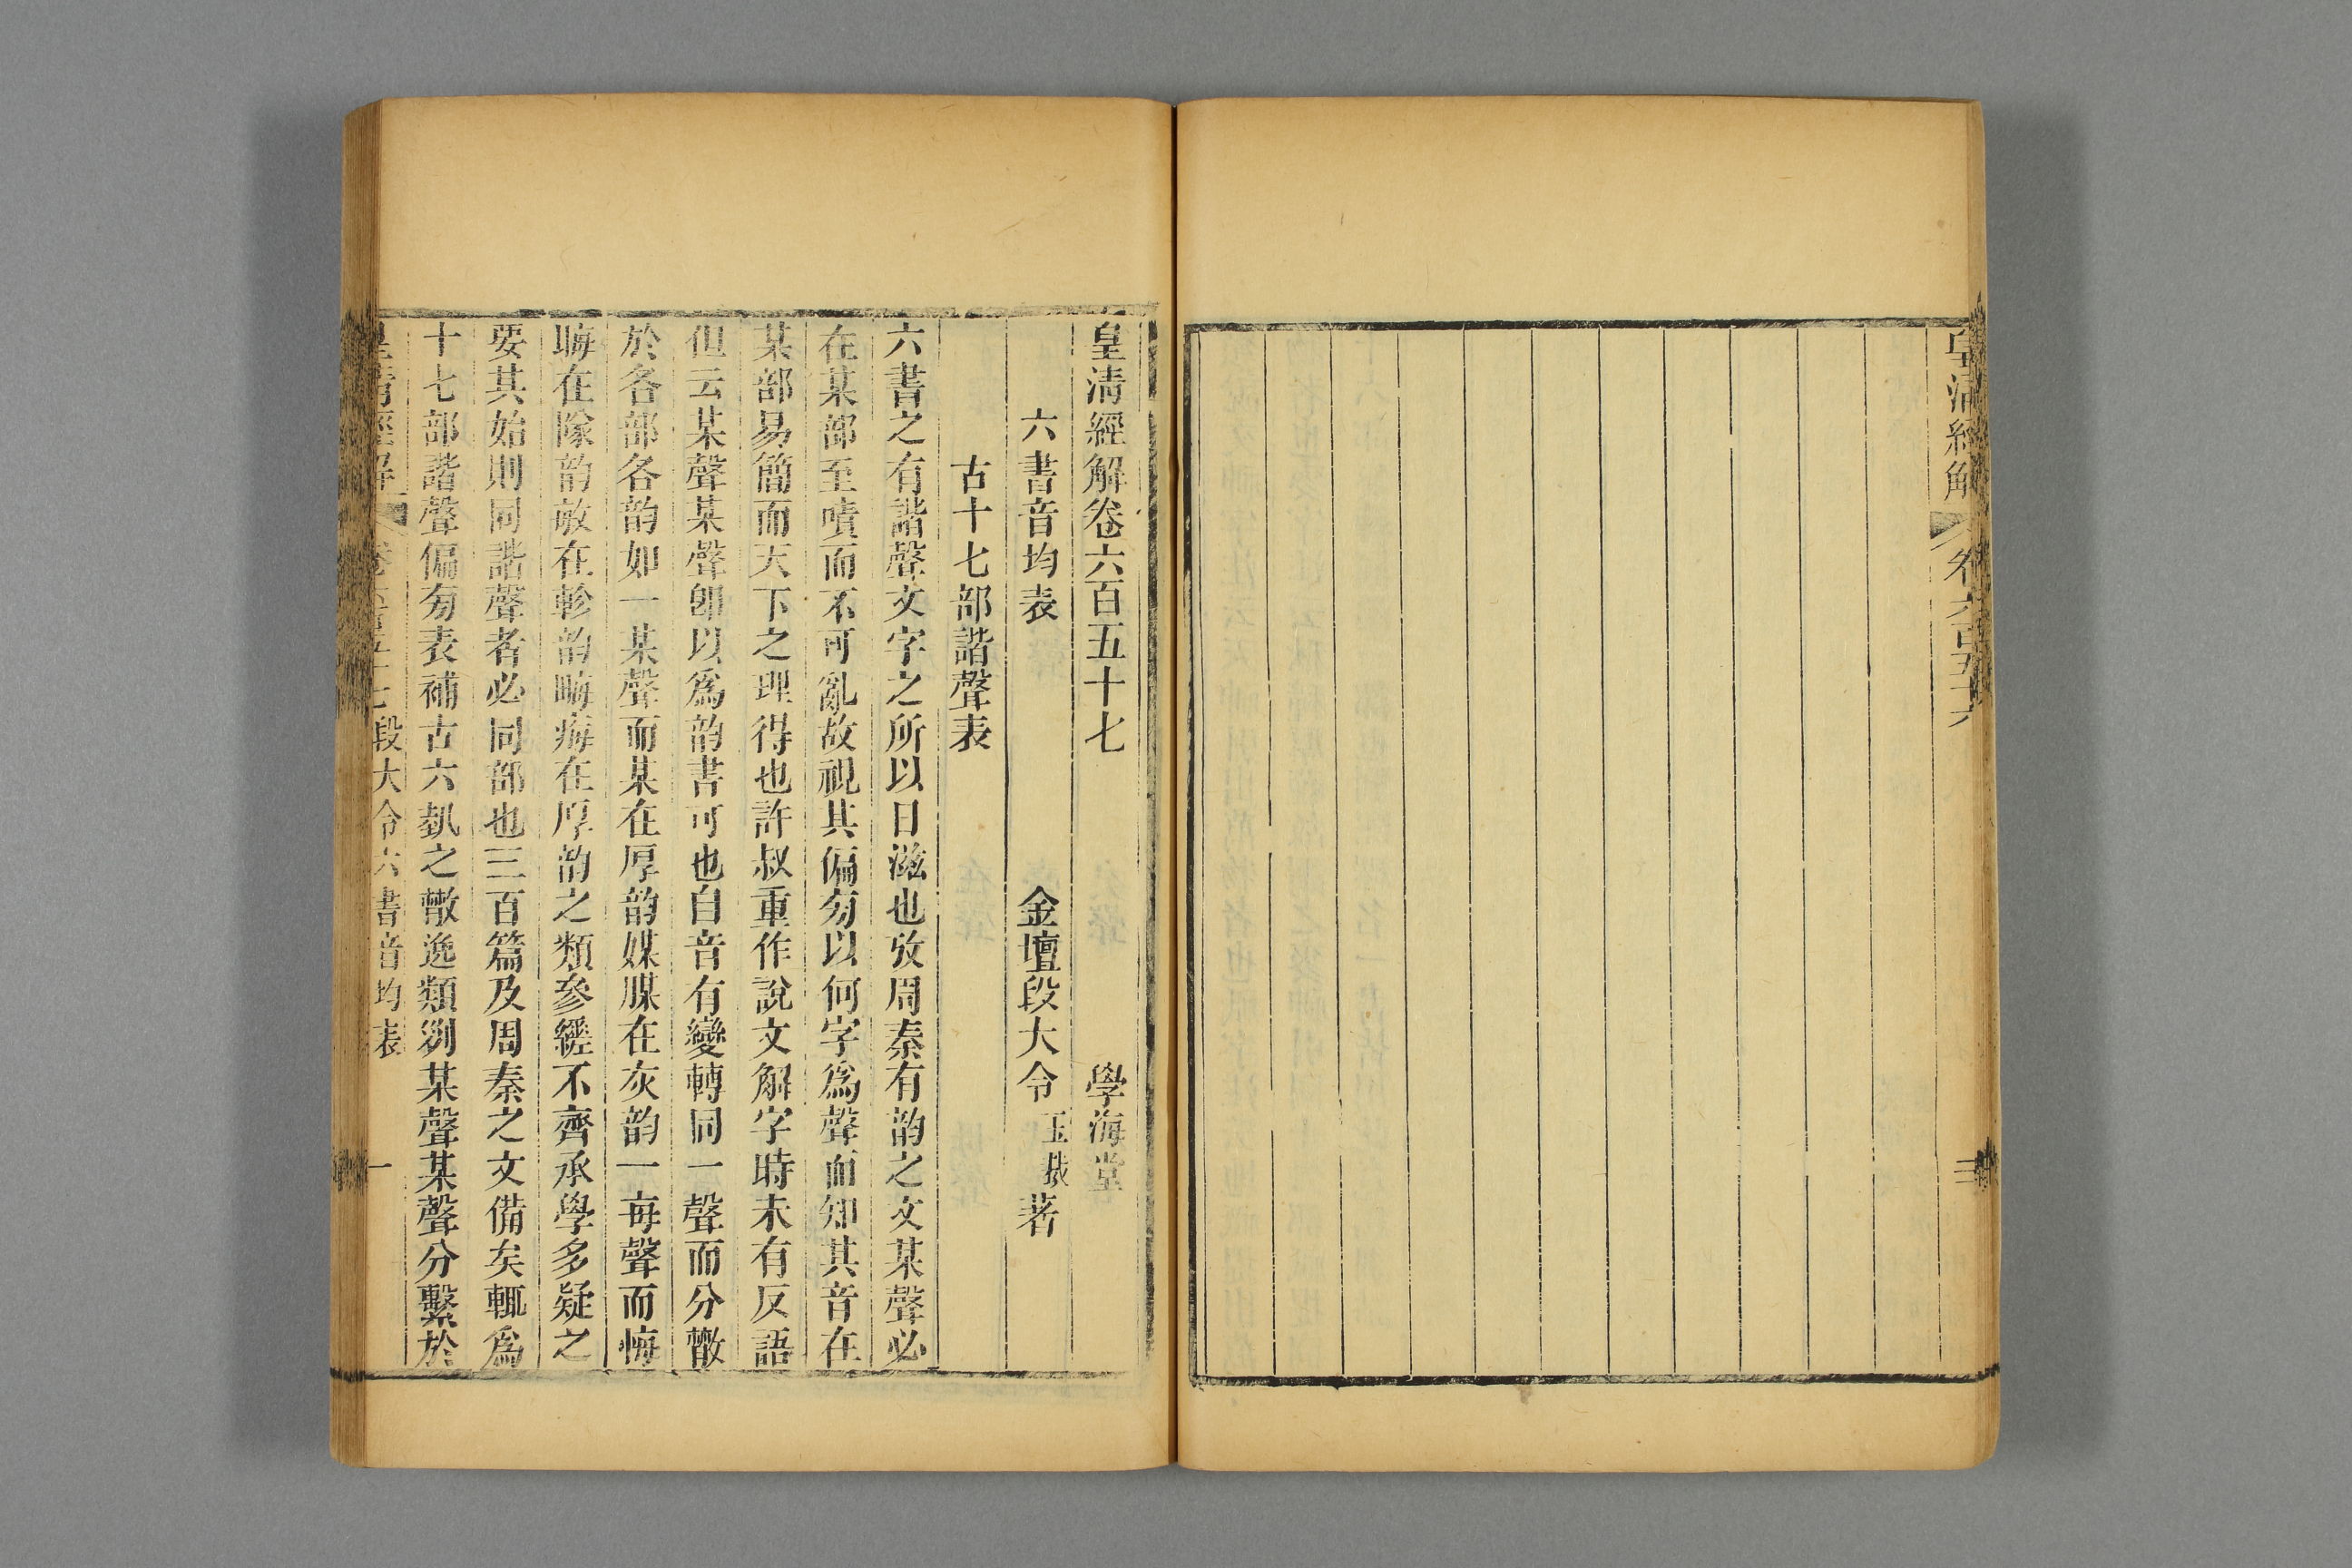 皇清經解 卷六百五十六
三
皇清經解卷六百五十七 學海堂
六書音均表 金壇段大令玉裁著
古十七部諧聲表
六書之有諧聲文字之所以日滋也攷周秦有韵之文某聲必
在某部至嘖而不可亂故視其偏㫄以何字爲聲而知其音在
某部易簡而天下之理得也許叔重作說文解字時未有反語
但云某聲某聲卽以爲韵書可也自音有變轉同一聲而分㪚
於各部各韵如一某聲而某在厚韵媒腜在灰韵一每聲而悔
晦在隊韵敏在軫韵畮痗在厚韵之類參縒不齊承學多疑之
要其始則同諧聲者必同部也三百篇及周秦之文備矣輒爲
十七部諧聲偏㫄表補古六埶之㪚逸類列某聲某聲分繫於
皇清經解 卷六百五十七 段大令六書音均表 一